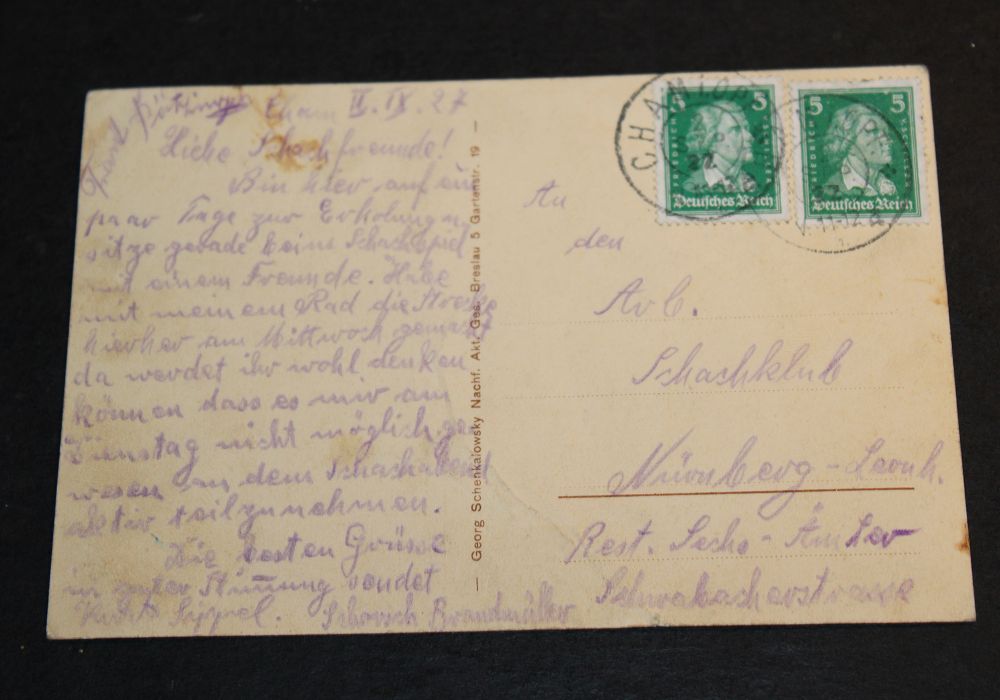 Cham II. IX. 27
Liebe Schachfreunde!
Bin hier auf ein
paar Tage zur Erholung u.
sitze gerade beim Schachspiel
mit einem Freunde. Habe
mit meinem Rad die Strecke
hierher am Mittwoch gemacht
da werdet ihr wohl denken
können dass es mir am
Dienstag nicht möglich ge-
wesen an dem Schachabend
aktiv teilzunehmen.
Die besten Grüsse
in guter Stimmung sendet
Sippel. Schorsch Brandmüller
— Georg Schenkalowsky Nachf. Akt. Ges. Breslau 5 Gartenstr. 19 —
CHAM
5 5
FRIEDRICH
Deutsches Reich
5 5
FRIEDRICH
Deutsches Reich
An
den
Arb.
Schachklub
Nürnberg - Leonh.
Rest. Sechs - Ämter
Schwabacherstrasse